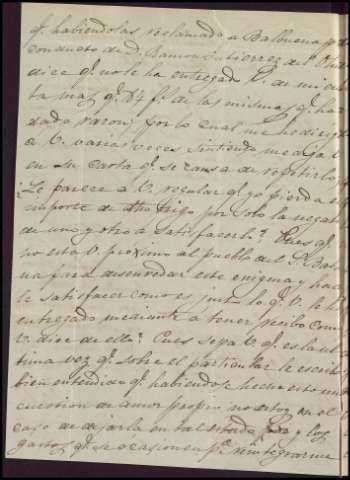 q.e habiendolas reclamado a Balbuena p.r
conducto de D. Ramon Gutierrez del
dice q.e no le ha entregado V. de mi cuen
ta mas q.e 84 f.s de las mismas q.e ha
dado razon; por lo cual me he dirigido
á V. varias veces sintiendo me diga V.
en su carta q.e se cansa de repetirlo.
¿Le parece a V. regular q.e yo pierda el
importe de dho trigo por solo la negat
de uno y otro a satisfacerlo? Pues q.e
no esta V. proximo al pueblo del S. Bal
na para desenredar este enigma y hacer
le satisfacer como es justo lo q.e V. le ha
entregado mediante a tener recibo como
V. dice de ello? Pues sepa V. q.e es la ul
tima vez q.e sobre el particular le escribo
bien entendido q.e habiendose hecho esto una
cuestion de amor propio no estoy en el
caso de dejarla en tal estado y los
gastos q.e se ocasionen p.a reintegrarme